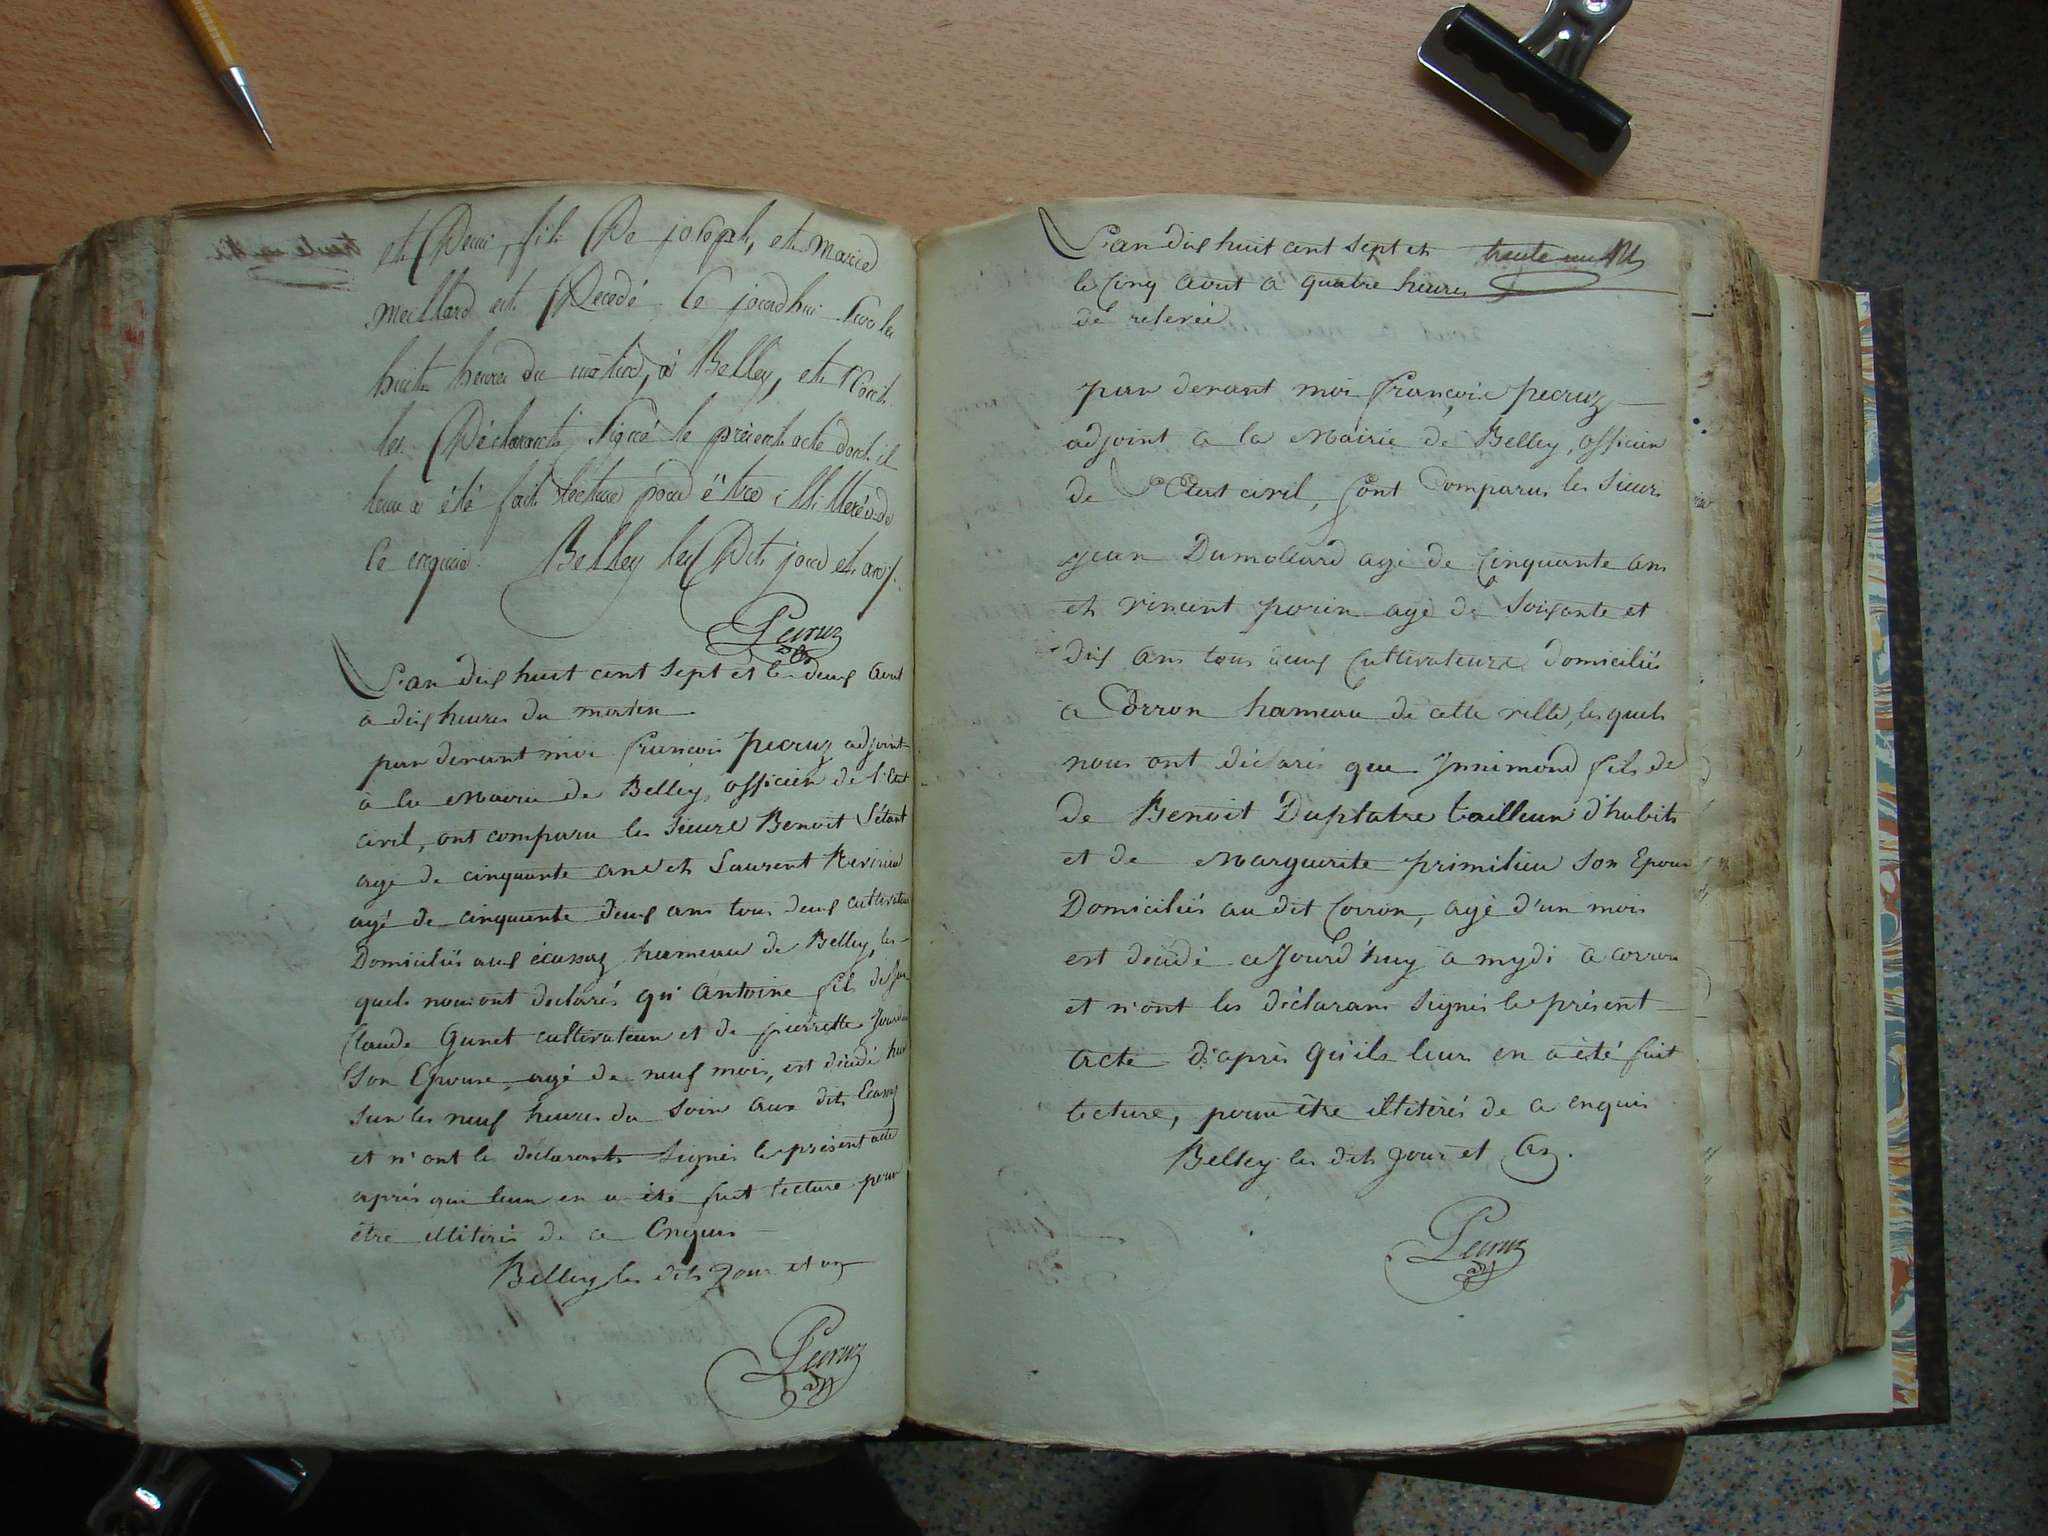 et Demi, fils De joseph, et Marie
Meillard est Decedé, Ce jourdhui Sur les
huit heures du matin, à Belley, et N'ont
les Déclarants Signé le present acte dont il
leur a été fait lecture pour être illitterés de
Ce enquis. Belley les Dits jour et an.
Pecruz
adj
L'an dix huit cent sept et le deux Aout
a dix heures du matin
par devant moi françois Pecruz adjoint
à la Mairie de Belley, officier de l'Etat
civil, ont comparu les Sieurs Benoit
agé de cinquante ans et Laurent
agé de cinquante deux ans tous deux cultivateurs
Domiciliés aux écassaz hameau de Belley, les-
quels nous ont déclarés qu'Antoine fils de feu
Claude Gunet cultivateur et de pierrette
Son Epouse, agé de neuf mois, est décédé hier
Sur les neuf heures du Soir aux dits Ecassaz
et n'ont les déclarants Signés le présent acte
après que leur en a été fait lecture pour
être illitérés de ce Enquis
Belley les dits Jour et an
Pecruz
adj
L'an dix huit cent Sept et trente un
le Cinq Aout a quatre heures
de relevée
par devant moi françois Pecruz
adjoint a la Mairie de Belley, officier
de L'Etat civil, Sont Comparus les Sieurs
Jean Dumollard agé de Cinquante ans
et vincent porin agé de Soixante et
dix ans tous deux Cultivateurs domiciliés
a Corron hameau de cette ville, les quels
nous ont déclarés que Innimond fils de
de Benoit Duplatre tailleur d'habits
et de Marguerite primilieu Son Epouse
Domiciliés au dit Corron, agé d'un mois
est décédé ce Jourd'huy à mydi à corron
et n'ont les déclarans Signés le présent
Acte d'après qu'ils leurs en a été fait
lecture, pour être illitérés de ce enquis
Belley les dits Jour et An.
Pecruz
adj